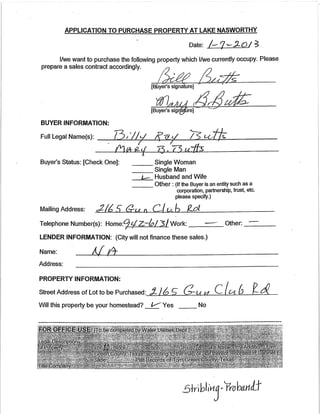 APPLICATION TO PURCHASE PROPERTY AT LAKE NASWORTHY
Date: 1-7-2013
I/we want to purchase the following property which I/we currently occupy. Please
prepare a sales contract accordingly.
Bill Butts
[Buyer's signature]
Mary B. Butts
[Buyer's signature]
BUYER INFORMATION:
Full Legal Name(s): Billy Ray Butts
Mary B. Butts
Buyer's Status: [Check One]: Single Woman
Single Man
Husband and Wife
Other : (If the Buyer is an entity such as a
corporation, partnership, trust, etc.
please specify.)
Mailing Address: 2165 Gun Club Rd
Telephone Number(s): Home: 942-6131 Work: — Other: —
LENDER INFORMATION: (City will not finance these sales.)
Name: N/A
Address:
PROPERTY INFORMATION:
Street Address of Lot to be Purchased: 2165 Gun Club Rd
Will this property be your homestead? Yes No
FOR OFFICE USE: [To be completed by Water Utilities Dept.]
Legal Description
of Property:
Tom Green County, Texas
Plat Records of Tom Green County, Texas
Title Company:
Stribling-Probandt